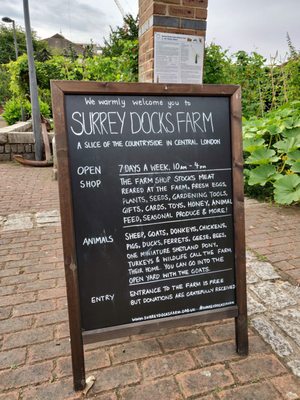 We warmly welcome you to
SURREY DOCKS FARM
A SLICE OF THE COUNTRYSIDE IN CENTRAL LONDON
OPEN 7 DAYS A WEEK, 10am - 4pm
SHOP THE FARM SHOP STOCKS MEAT
REARED AT THE FARM, FRESH EGGS,
PLANTS, SEEDS, GARDENING TOOLS,
GIFTS, CARDS, TOYS, HONEY, ANIMAL
FEED, SEASONAL PRODUCE & MORE!
SHEEP, GOATS, DONKEYS, CHICKENS,
ANIMALS PIGS, DUCKS, FERRETS, GEESE, BEES,
ONE MINIATURE SHETLAND PONY,
TURKEYS & WILDLIFE CALL THE FARM
THEIR HOME. YOU CAN GO INTO THE
OPEN YARD WITH THE GOATS.
ENTRY ENTRANCE TO THE FARM IS FREE
BUT DONATIONS ARE GRATEFULLY RECEIVED
WWW.SURREYDOCKSFARM.ORG.UK
SURREY DOCKS FARM